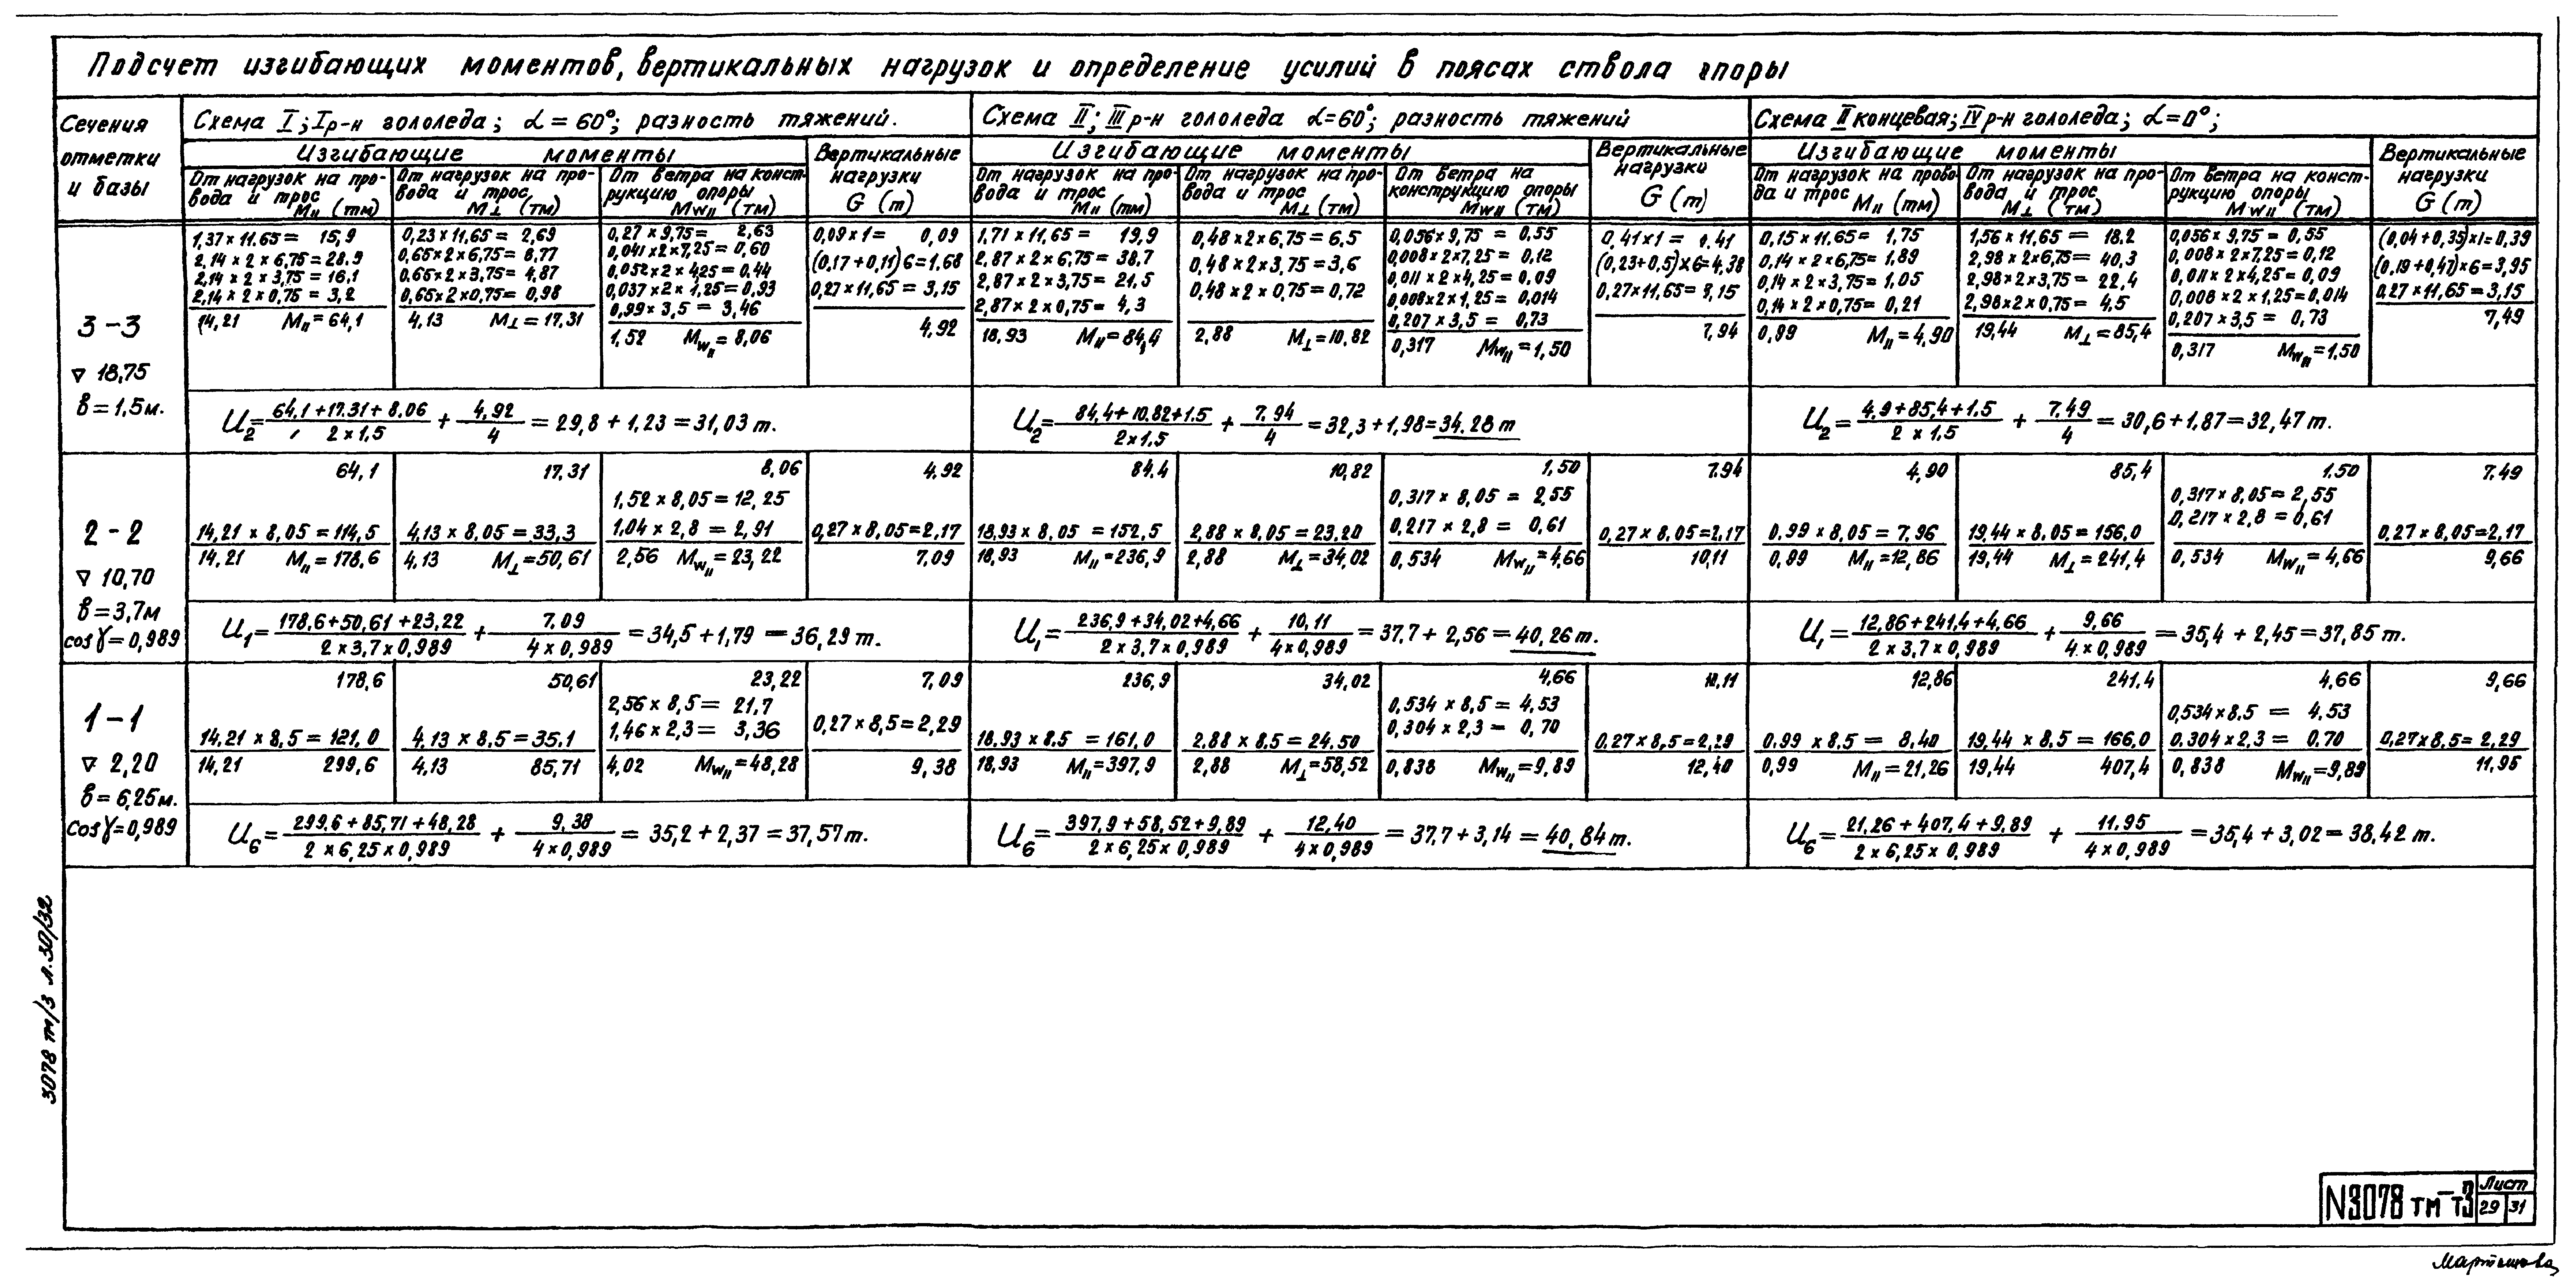 Подсчет изгибающих моментов, вертикальных нагрузок и определение усилий в поясах ствола опоры
Сечения
отметки
и базы
Схема I; I р-н гололеда; α = 60°; разность тяжений.
Изгибающие моменты
От нагрузок на про-
вода и трос
M∥ (тм)
От нагрузок на про-
вода и трос
M⊥ (тм)
От ветра на конст-
рукцию опоры
Mw∥ (тм)
Вертикальные
нагрузки
G (т)
Схема II; III р-н гололеда α=60°; разность тяжений
Изгибающие моменты
От нагрузок на про-
вода и трос
M∥ (тм)
От нагрузок на про-
вода и трос
M⊥ (тм)
От ветра на
конструкцию опоры
Mw∥ (тм)
Вертикальные
нагрузки
G (т)
Схема II концевая; IV р-н гололеда; α=0°;
Изгибающие моменты
От нагрузок на прово-
да и трос M∥ (тм)
От нагрузок на про-
вода и трос
M⊥ (тм)
От ветра на конст-
рукцию опоры
Mw∥ (тм)
Вертикальные
нагрузки
G (т)
3-3
∇ 18,75
в=1,5м.
1,37 × 11,65 = 15,9
2,14 × 2 × 6,75 = 28,9
2,14 × 2 × 3,75 = 16,1
2,14 × 2 × 0,75 = 3,2
14,21 M∥ = 64,1
0,23 × 11,65 = 2,69
0,65×2×6,75 = 8,77
0,65×2×3,75 = 4,87
0,65×2×0,75 = 0,98
4,13 M⊥ = 17,31
0,27 × 9,75 = 2,63
0,041×2×7,25 = 0,60
0,052×2×4,25 = 0,44
0,037×2×1,25 = 0,93
0,99 × 3,5 = 3,46
1,52 Mw∥ = 8,06
0,09 × 1 = 0,09
(0,17 + 0,11)6 = 1,68
0,27 × 11,65 = 3,15
4,92
1,71 × 11,65 = 19,9
2,87 × 2 × 6,75 = 38,7
2,87 × 2 × 3,75 = 21,5
2,87 × 2 × 0,75 = 4,3
18,93 M∥ = 84,4
0,48 × 2 × 6,75 = 6,5
0,48 × 2 × 3,75 = 3,6
0,48 × 2 × 0,75 = 0,72
2,88 M⊥ = 10,82
0,056 × 9,75 = 0,55
0,008×2×7,25 = 0,12
0,011×2×4,25 = 0,09
0,008×2×1,25 = 0,014
0,207 × 3,5 = 0,73
0,317 Mw∥ = 1,50
0,41×1 = 0,41
(0,23+0,5)×6=4,38
0,27×11,65 = 3,15
7,94
0,15 × 11,65 = 1,75
0,14 × 2 × 6,75 = 1,89
0,14 × 2 × 3,75 = 1,05
0,14 × 2 × 0,75 = 0,21
0,89 M∥ = 4,90
1,56 × 11,65 = 18,2
2,98 × 2×6,75 = 40,3
2,98×2×3,75 = 22,4
2,98×2×0,75 = 4,5
19,44 M⊥ = 85,4
0,056 × 9,75 = 0,55
0,008 × 2×7,25 = 0,12
0,011 × 2×4,25 = 0,09
0,008 × 2×1,25 = 0,014
0,207 × 3,5 = 0,73
0,317 Mw∥ = 1,50
(0,04 + 0,35)×1=0,39
(0,19+0,47)×6=3,95
0,27 × 11,65 = 3,15
7,49
U₂ = (64,1 + 17,31 + 8,06)/(2 × 1,5) + 4,92/4 = 29,8 + 1,23 = 31,03 т.
U₂ = (84,4 + 10,82 + 1,5)/(2×1,5) + 7,94/4 = 32,3 + 1,98 = 34,28 т
U₂ = (4,9 + 85,4 + 1,5)/(2 × 1,5) + 7,49/4 = 30,6 + 1,87 = 32,47 т.
2-2
∇ 10,70
в=3,7м
cosγ=0,989
64,1
14,21 × 8,05 = 114,5
14,21 M∥ = 178,6
17,31
4,13 × 8,05 = 33,3
4,13 M⊥ = 50,61
8,06
1,52 × 8,05 = 12,25
1,04 × 2,8 = 2,91
2,56 Mw∥ = 23,22
4,92
0,27 × 8,05 = 2,17
7,09
84,4
18,93 × 8,05 = 152,5
18,93 M∥ = 236,9
10,82
2,88 × 8,05 = 23,20
2,88 M⊥ = 34,02
1,50
0,317 × 8,05 = 2,55
0,217 × 2,8 = 0,61
0,534 Mw∥ = 4,66
7,94
0,27 × 8,05 = 2,17
10,11
4,90
0,99 × 8,05 = 7,96
0,89 M∥ = 12,86
85,4
19,44 × 8,05 = 156,0
19,44 M⊥ = 241,4
1,50
0,317 × 8,05 = 2,55
0,217 × 2,8 = 0,61
0,534 Mw∥ = 4,66
7,49
0,27 × 8,05 = 2,17
9,66
U₁ = (178,6 + 50,61 + 23,22)/(2 × 3,7 × 0,989) + 7,09/(4 × 0,989) = 34,5 + 1,79 = 36,29 т.
U₁ = (236,9 + 34,02 + 4,66)/(2 × 3,7 × 0,989) + 10,11/(4×0,989) = 37,7 + 2,56 = 40,26 т.
U₁ = (12,86 + 241,4 + 4,66)/(2 × 3,7 × 0,989) + 9,66/(4 × 0,989) = 35,4 + 2,45 = 37,85 т.
1-1
∇ 2,20
в=6,25м.
cosγ=0,989
178,6
14,21 × 8,5 = 121,0
14,21 299,6
50,61
4,13 × 8,5 = 35,1
4,13 85,71
23,22
2,56 × 8,5 = 21,7
1,46 × 2,3 = 3,36
4,02 Mw∥ = 48,28
7,09
0,27 × 8,5 = 2,29
9,38
236,9
18,93 × 8,5 = 161,0
18,93 M∥ = 397,9
34,02
2,88 × 8,5 = 24,50
2,88 M⊥ = 58,52
4,66
0,534 × 8,5 = 4,53
0,304 × 2,3 = 0,70
0,838 Mw∥ = 9,89
10,11
0,27×8,5 = 2,29
12,40
12,86
0,99 × 8,5 = 8,40
0,99 M∥ = 21,26
241,4
19,44 × 8,5 = 166,0
19,44 407,4
4,66
0,534×8,5 = 4,53
0,304×2,3 = 0,70
0,838 Mw∥ = 9,89
9,66
0,27×8,5 = 2,29
11,95
U₆ = (299,6 + 85,71 + 48,28)/(2 × 6,25 × 0,989) + 9,38/(4 × 0,989) = 35,2 + 2,37 = 37,57 т.
U₆ = (397,9 + 58,52 + 9,89)/(2 × 6,25 × 0,989) + 12,40/(4 × 0,989) = 37,7 + 3,14 = 40,84 т.
U₆ = (21,26 + 407,4 + 9,89)/(2 × 6,25 × 0,989) + 11,95/(4 × 0,989) = 35,4 + 3,02 = 38,42 т.
3078 тм/3 л.30/32
N3078 тм-т3
Лист
29 31